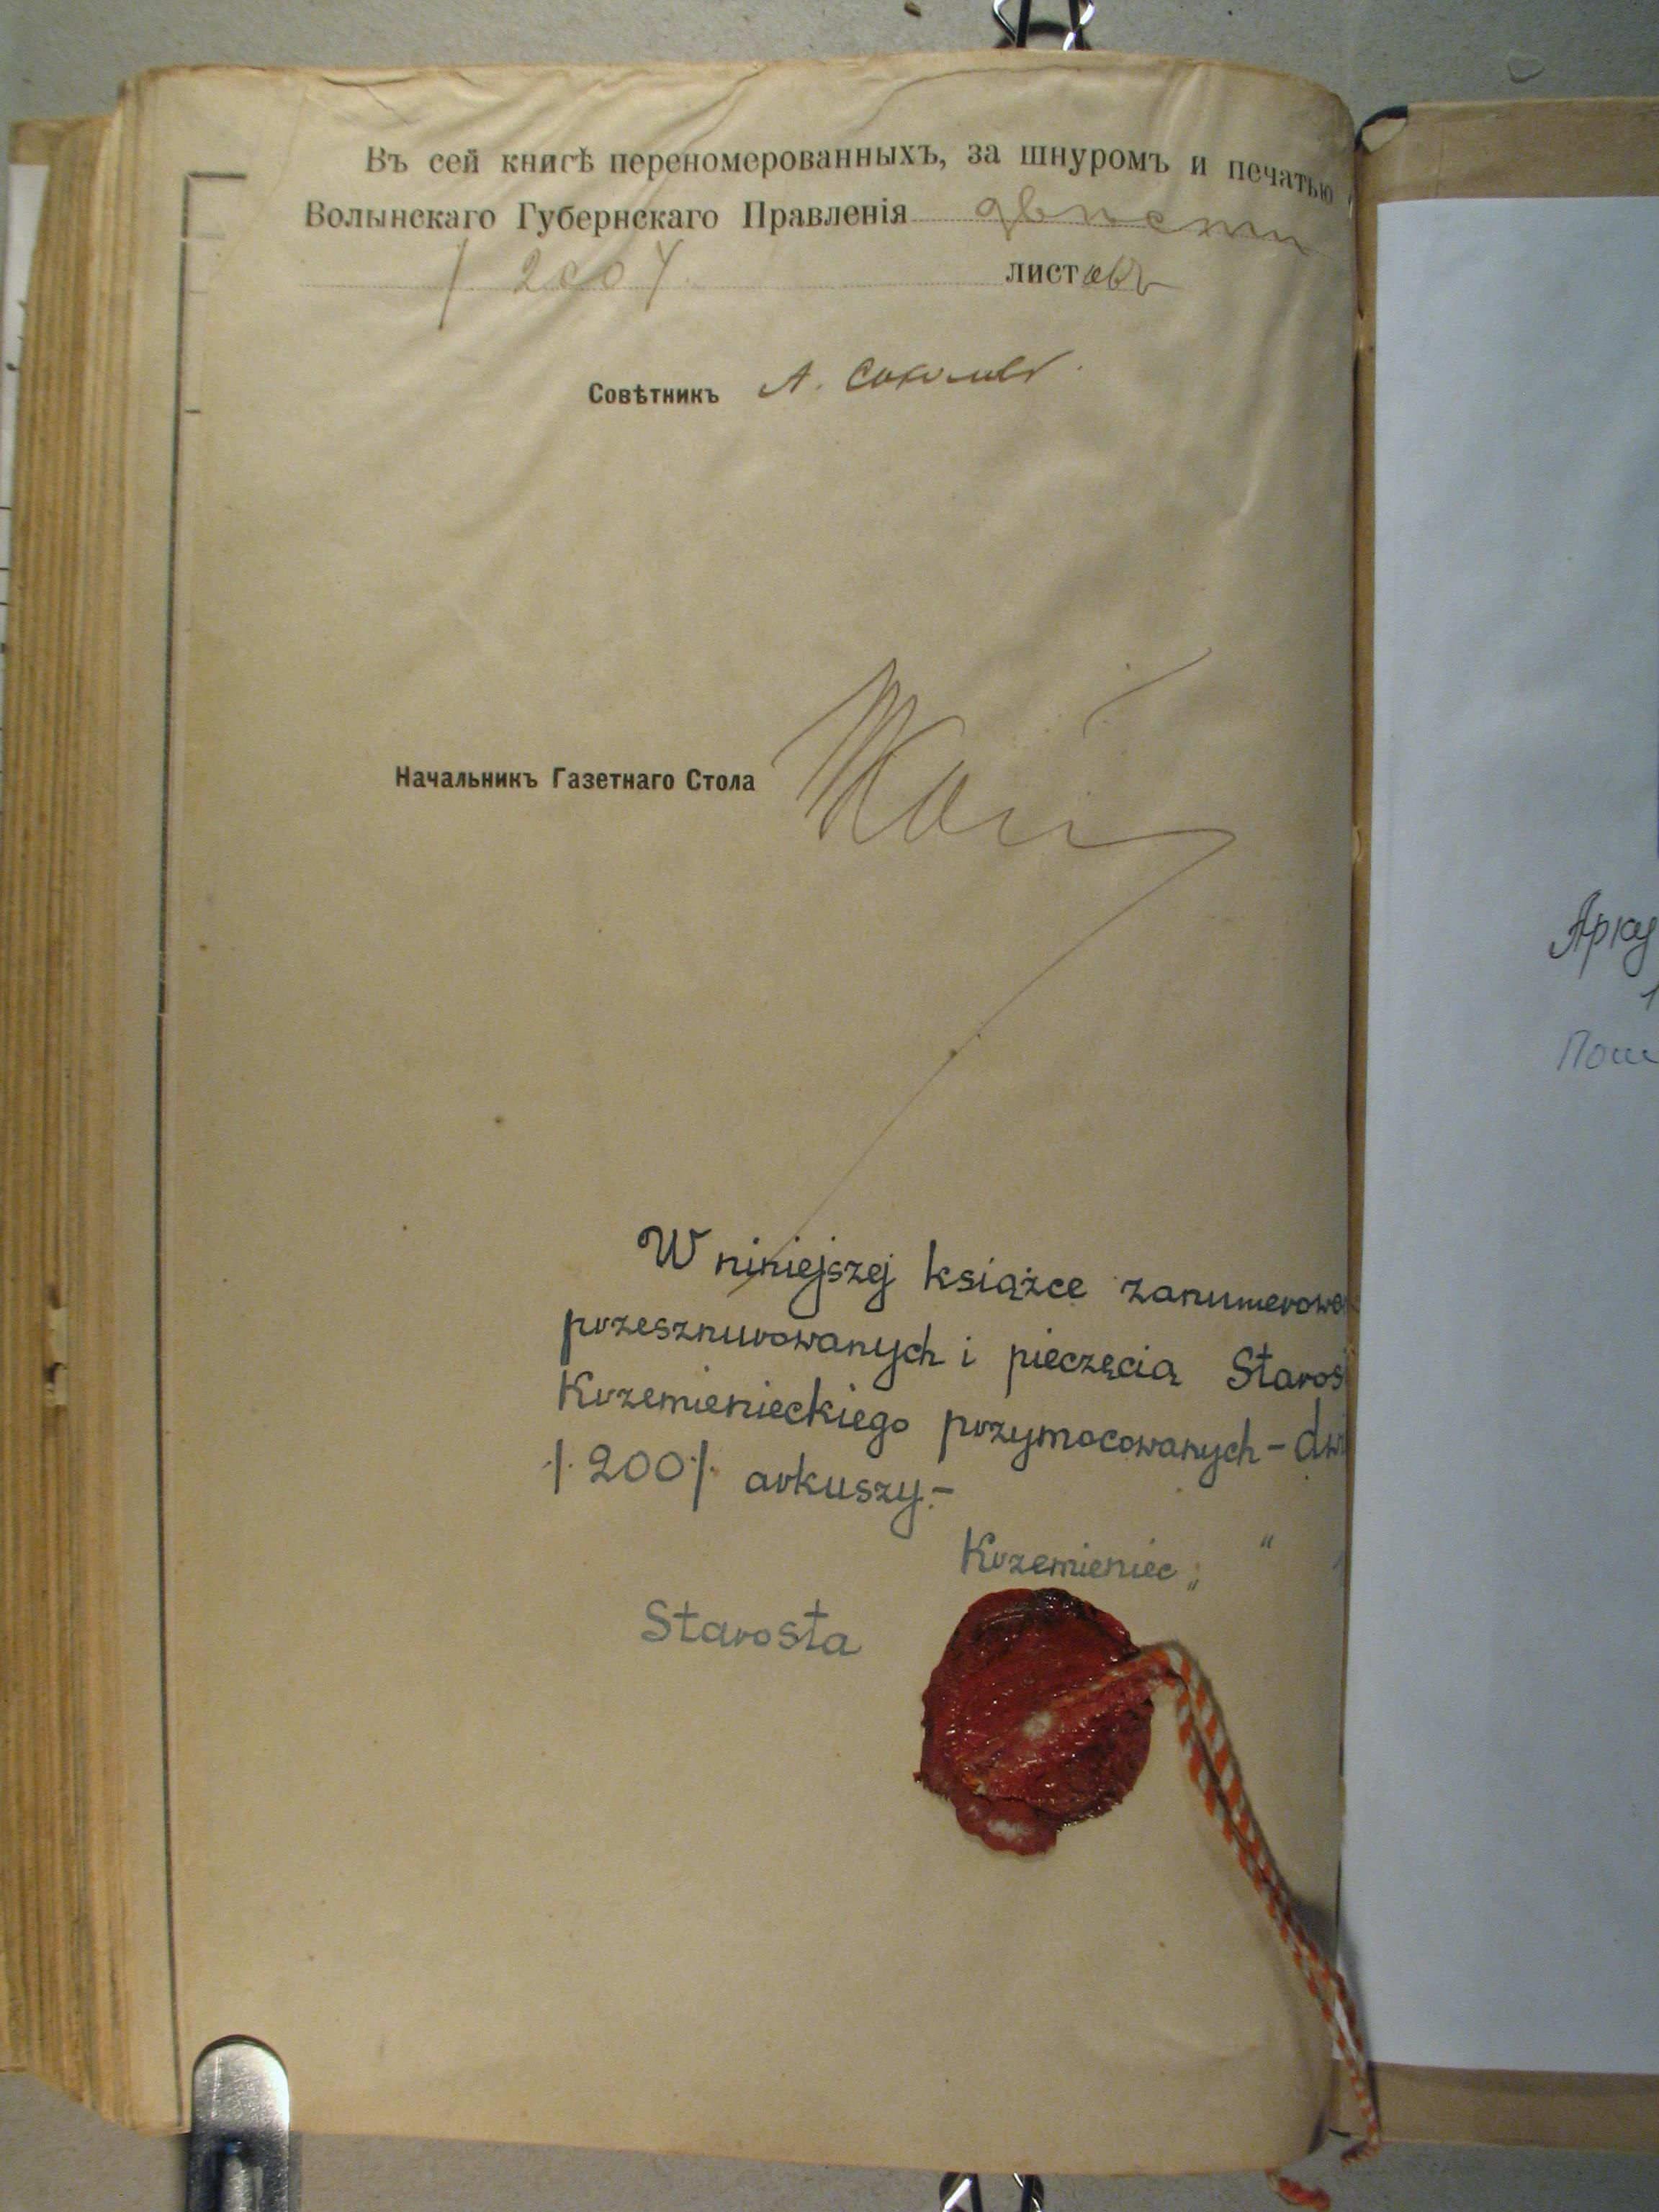 Въ сей книгѣ переномерованныхъ, за шнуромъ и печатью
Волынскаго Губернскаго Правленія двѣсти
/200/ листовъ
Совѣтникъ А. Соколовъ.
Начальникъ Газетнаго Стола
W niniejszej książce zanumerowa
przesznurowanych i pieczęcią Staros
Krzemienieckiego przymocowanych - dwi
/.200/. arkuszy.-
Krzemieniec „ “
Starosta
Арку
1
Пош